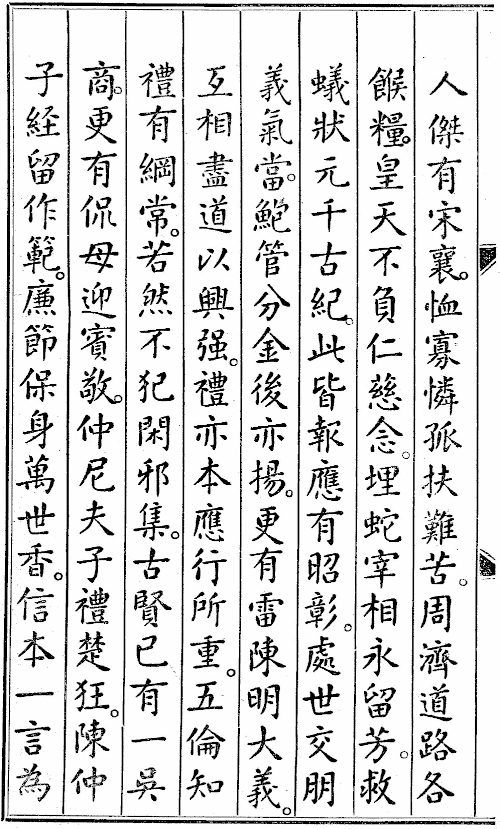 人傑有宋襄。恤寡憐孤扶難苦。周濟道路各
餱糧。皇天不負仁慈念。埋蛇宰相永留芳。救
蟻狀元千古紀。此皆報應有昭彰。處世交朋
義氣當。鮑管分金後亦揚。更有雷陳明大義。
互相盡道以興强。禮亦本應行所重。五倫知
禮有綱常。若然不犯閑邪集。古賢已有一吳
商。更有侃母迎賓敬。仲尼夫子禮楚狂。陳仲
子経留作範。廉節保身萬世香。信本一言為